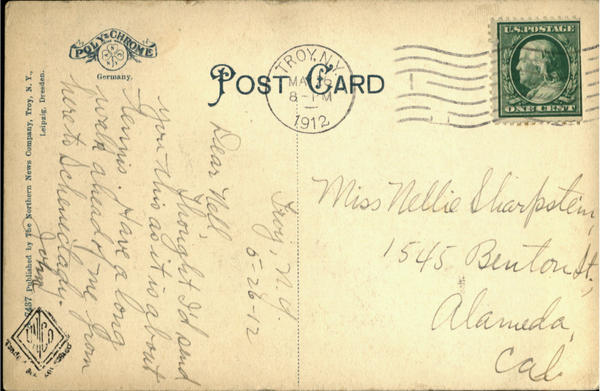 POLY-CHROME
Germany.
POST CARD
TROY, N.Y.
MAY 26
8-PM
1912
U.S. POSTAGE
ONE CENT
6487 Published by The Northern News Company, Troy, N. Y.,
Leipzig, Dresden.
Troy, N.Y.
5-26-12
Dear Nell,
Thought I'd send
you this as it is about
tennis. Have a long
walk ahead of me from
here to Schenectady.
John
Miss Nellie Sharpstein,
1545 Benton St.,
Alameda,
Cal.